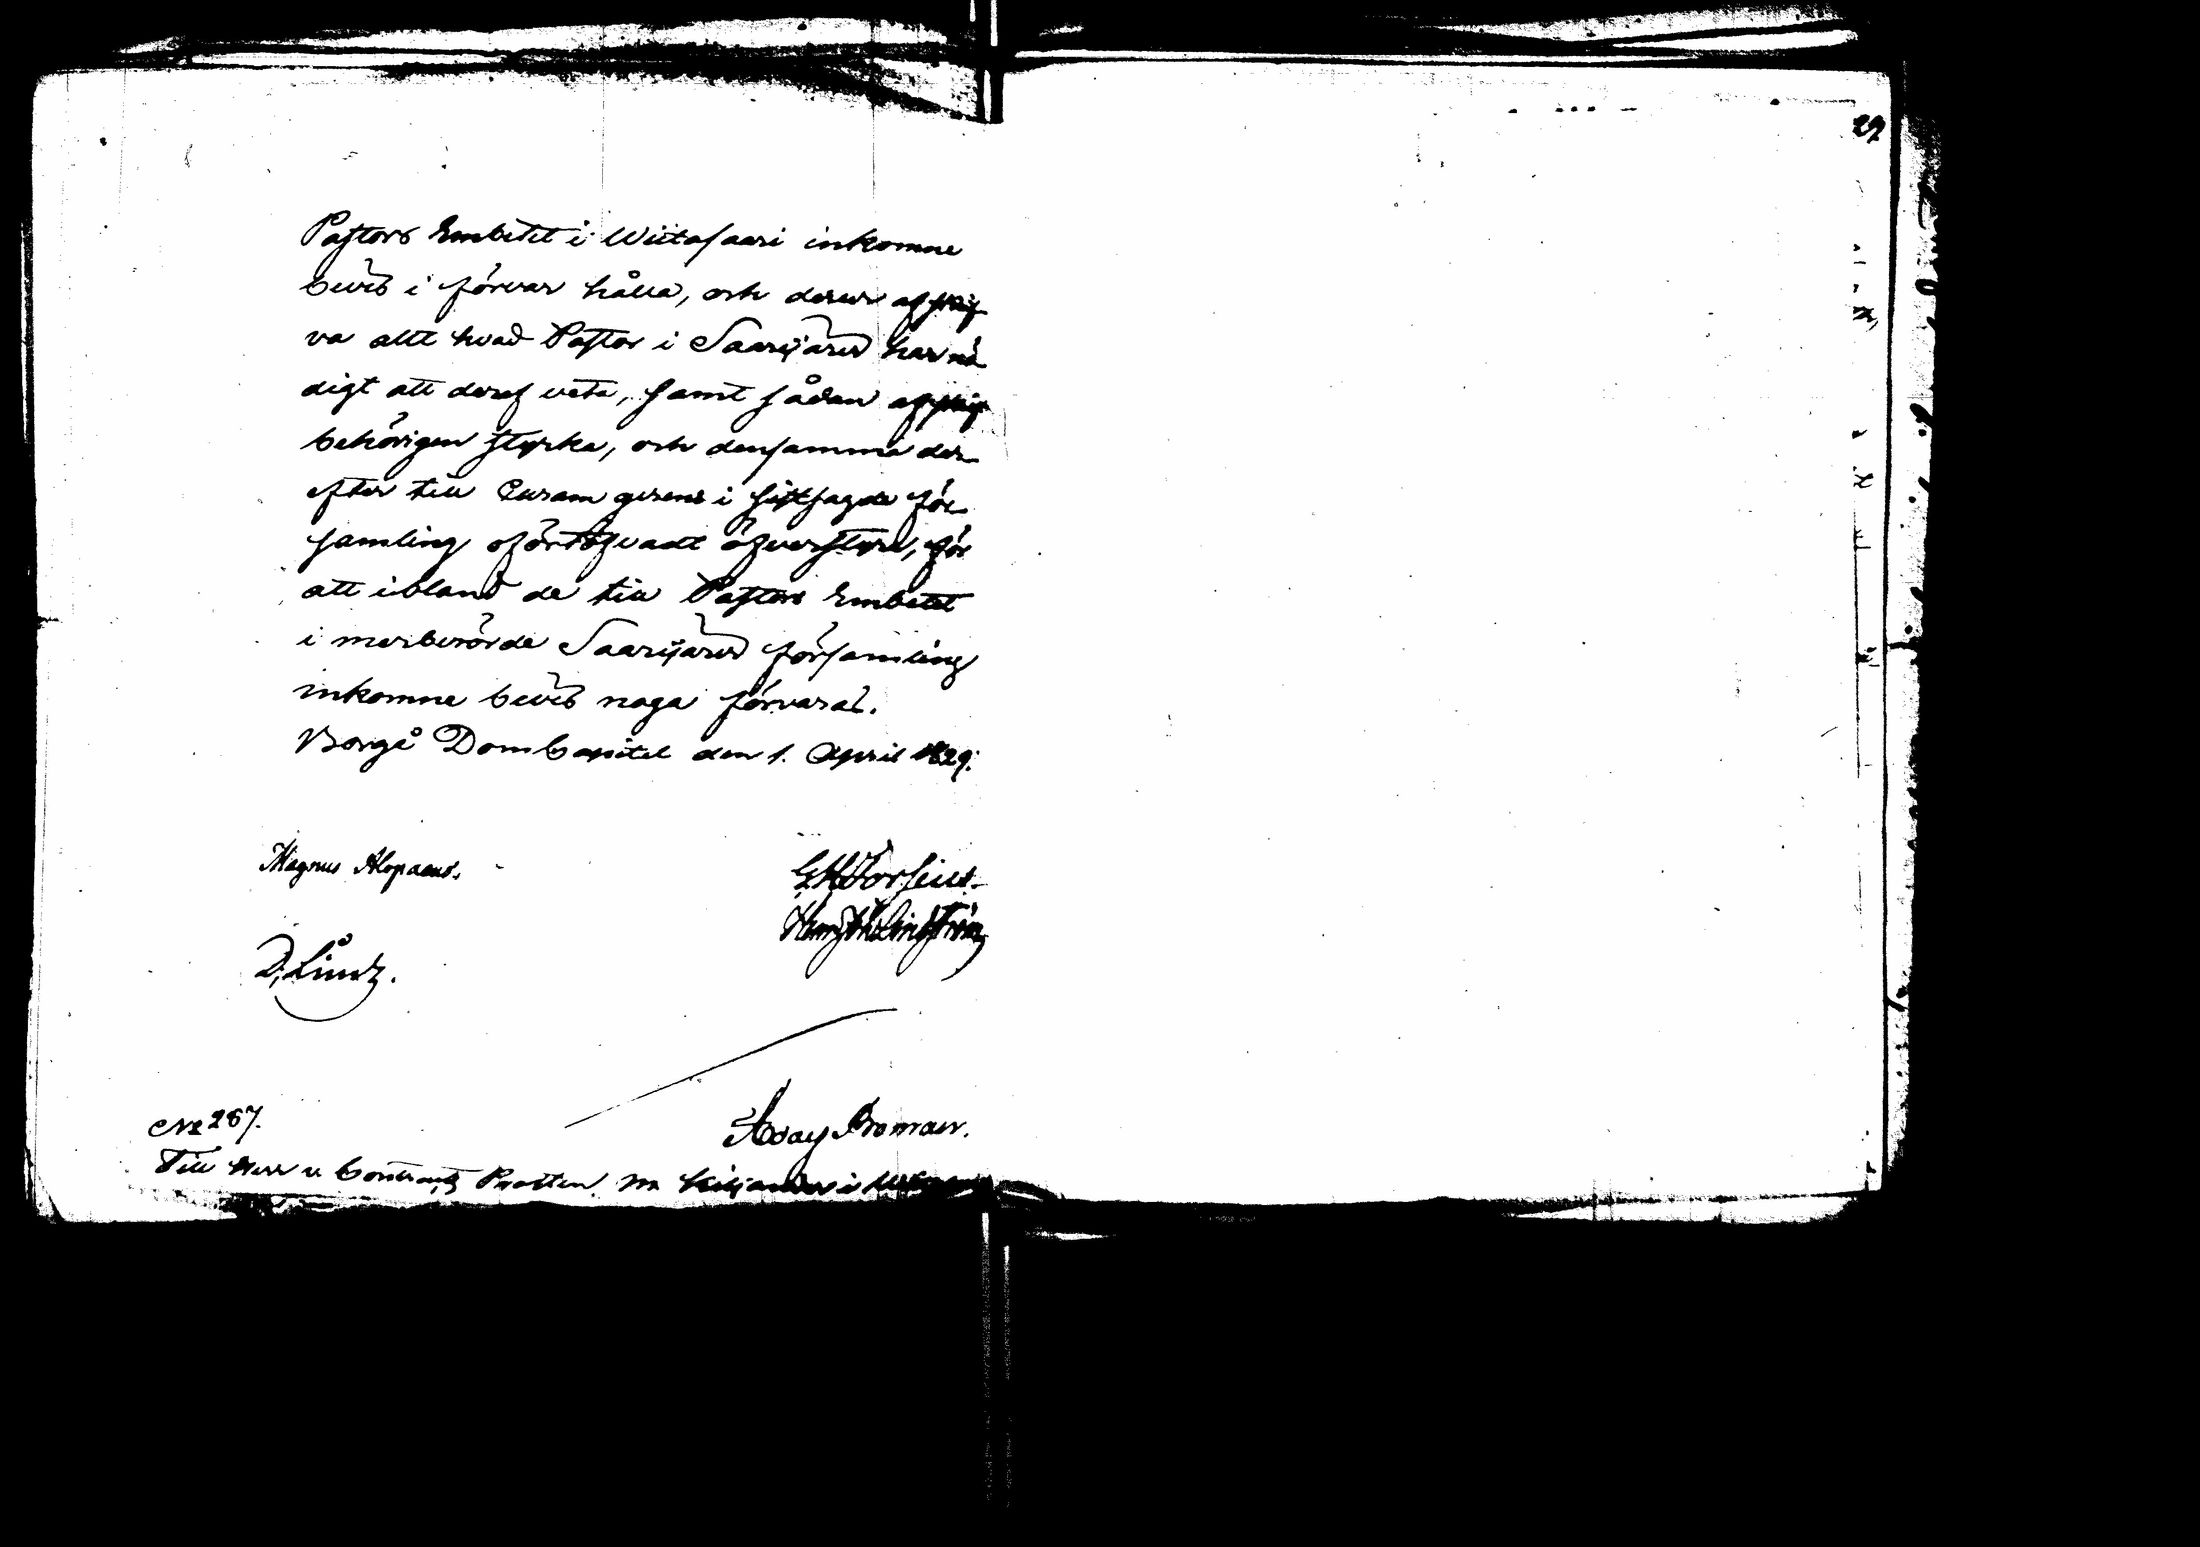 29
Pastors Embetet i Wiitasaari inkomne
bevis i förvar hålla, och derur afskrif-
va allt hvad Pastor i Saarijärvi har nö-
digt att deraf veta, samt sådan afskrift
behörigen styrka, och densamma der-
efter till Curam gerens i sistsagde för-
samling ofördröjvadt öfverstyra, för
att ibland de till Pastors Embetet
i merberörde Saarijärvi församling
inkomne bevis noga förvaras.
Borgå DomCapitel den 1. April 1829.
Magnus Alopaeus.
G.H. Forsius.
D. Lund.
Lindström
Borman.
No 287.
Till Herr Contracts Prosten M Kiljander i